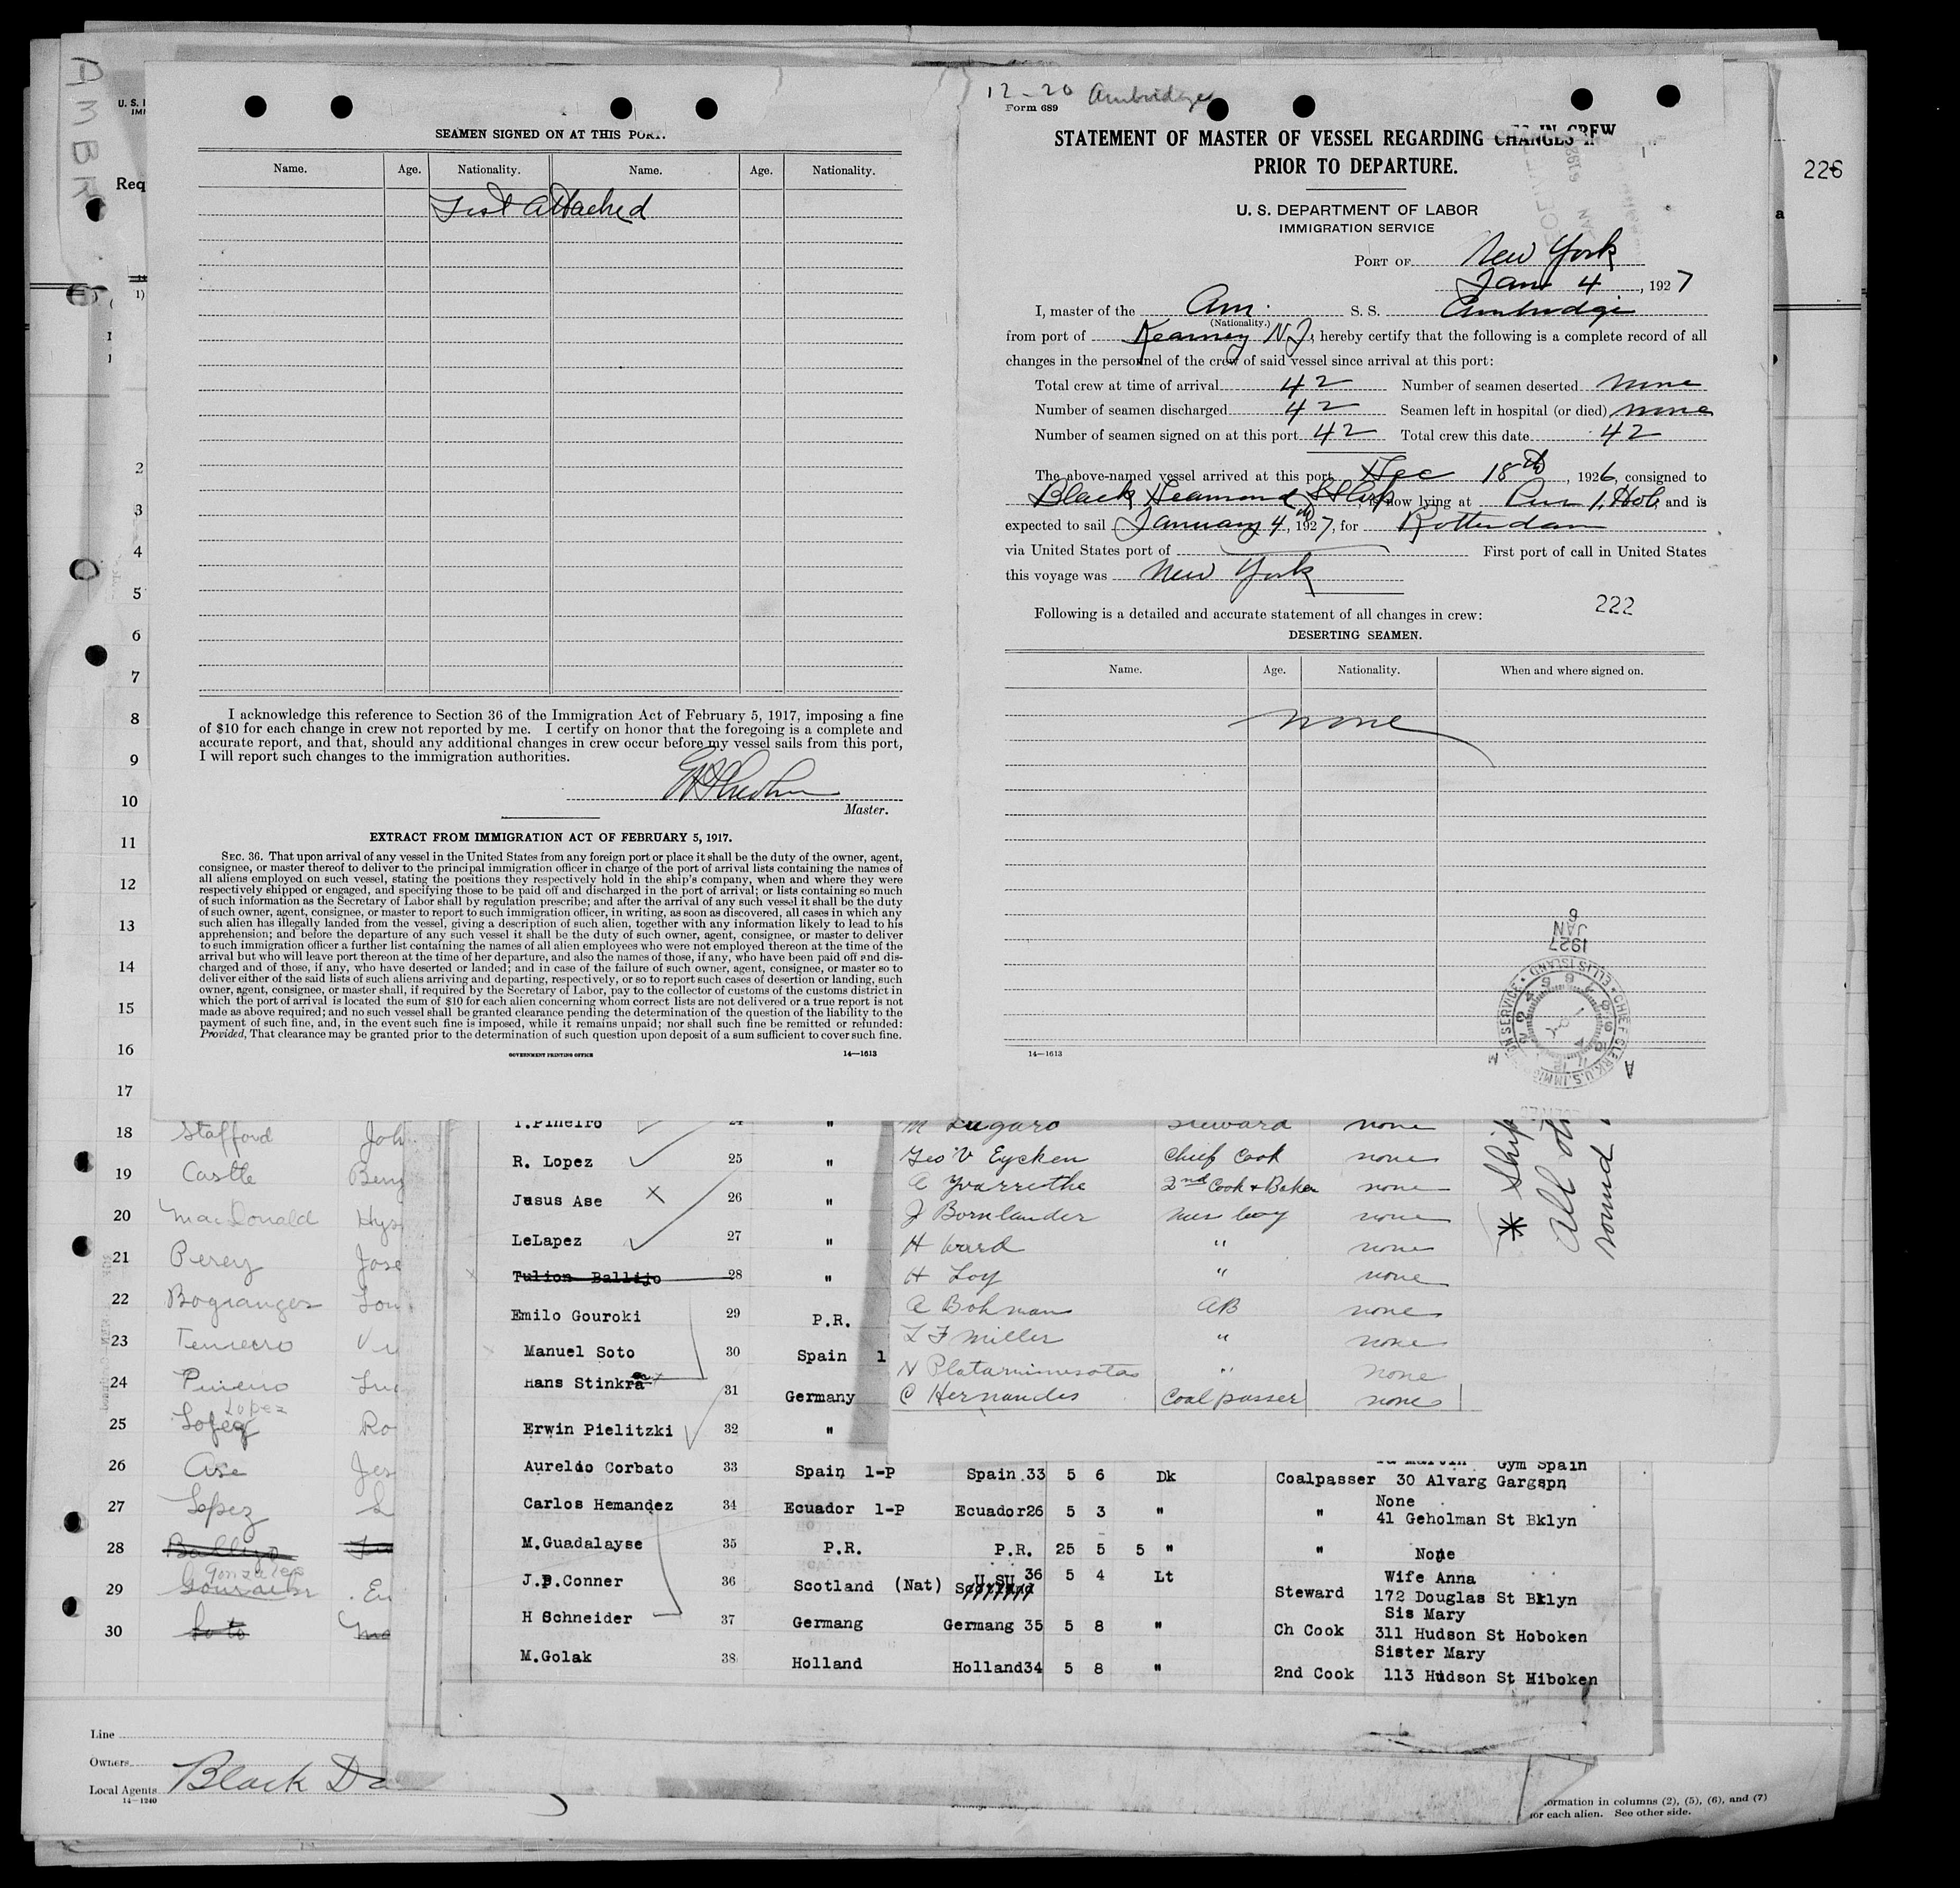 AMBR
U. S. I
IMI
Req
SEAMEN SIGNED ON AT THIS PORT.
Name. Age. Nationality. Name. Age. Nationality.
List attached
I acknowledge this reference to Section 36 of the Immigration Act of February 5, 1917, imposing a fine
of $10 for each change in crew not reported by me. I certify on honor that the foregoing is a complete and
accurate report, and that, should any additional changes in crew occur before my vessel sails from this port,
I will report such changes to the immigration authorities.
Master.
EXTRACT FROM IMMIGRATION ACT OF FEBRUARY 5, 1917.
SEC. 36. That upon arrival of any vessel in the United States from any foreign port or place it shall be the duty of the owner, agent,
consignee, or master thereof to deliver to the principal immigration officer in charge of the port of arrival lists containing the names of
all aliens employed on such vessel, stating the positions they respectively hold in the ship's company, when and where they were
respectively shipped or engaged, and specifying those to be paid off and discharged in the port of arrival; or lists containing so much
of such information as the Secretary of Labor shall by regulation prescribe; and after the arrival of any such vessel it shall be the duty
of such owner, agent, consignee, or master to report to such immigration officer, in writing, as soon as discovered, all cases in which any
such alien has illegally landed from the vessel, giving a description of such alien, together with any information likely to lead to his
apprehension; and before the departure of any such vessel it shall be the duty of such owner, agent, consignee, or master to deliver
to such immigration officer a further list containing the names of all alien employees who were not employed thereon at the time of the
arrival but who will leave port thereon at the time of her departure, and also the names of those, if any, who have been paid off and dis-
charged and of those, if any, who have deserted or landed; and in case of the failure of such owner, agent, consignee, or master so to
deliver either of the said lists of such aliens arriving and departing, respectively, or so to report such cases of desertion or landing, such
owner, agent, consignee, or master shall, if required by the Secretary of Labor, pay to the collector of customs of the customs district in
which the port of arrival is located the sum of $10 for each alien concerning whom correct lists are not delivered or a true report is not
made as above required; and no such vessel shall be granted clearance pending the determination of the question of the liability to the
payment of such fine, and, in the event such fine is imposed, while it remains unpaid; nor shall such fine be remitted or refunded:
Provided, That clearance may be granted prior to the determination of such question upon deposit of a sum sufficient to cover such fine.
GOVERNMENT PRINTING OFFICE 14—1613
12-20 Ambridge
Form 689
STATEMENT OF MASTER OF VESSEL REGARDING CHANGES IN CREW
PRIOR TO DEPARTURE.
U. S. DEPARTMENT OF LABOR
IMMIGRATION SERVICE
PORT OF New York
Jan 4, 1927
I, master of the Am. S. S. Ambridge
(Nationality.)
from port of Kearney N J, hereby certify that the following is a complete record of all
changes in the personnel of the crew of said vessel since arrival at this port:
Total crew at time of arrival 42 Number of seamen deserted none
Number of seamen discharged 42 Seamen left in hospital (or died) none
Number of seamen signed on at this port 42 Total crew this date 42
The above-named vessel arrived at this port Dec 18th, 1926, consigned to
Black Deamond SS Corp, is now lying at Pier 1, Hob, and is
expected to sail January 4th, 1927, for Rotterdam
via United States port of First port of call in United States
this voyage was New York
222
Following is a detailed and accurate statement of all changes in crew:
DESERTING SEAMEN.
Name. Age. Nationality. When and where signed on.
none
6
JAN
1927
CHIEF CLERK, U.S. IMMIGRATION SERVICE • ELLIS ISLAND
14—1613
226
2
3
4
5
6
7
8
9
10
11
12
13
14
15
16
17
18 Stafford Joh
19 Castle Benj
20 MacDonald Hys
21 Perey Jose
22 Bogranges Lou
23 Tenreiro
24 Pineiro Lui
25 Lopez Lopez Ro
26 Ase Jes
27 Lopez L
28 Ballijo
29 Gonzales Em
30 Soto Ma
T.Pineiro 24 "
R. Lopez 25 "
Jusus Ase 26 "
LeLapez 27 "
Tulion Ballijo 28 "
Emilo Gouroki 29 P.R.
Manuel Soto 30 Spain 1
Hans Stinkra 31 Germany
Erwin Pielitzki 32 "
M Lugaro Steward none
Geo V Eycken Chief Cook none
A Yvarrethe 2nd Cook + Baker none
J Bornlander mes boy none
H Ward " none
H Loy " none
A Bohman AB none
L F Miller " none
N Platarimesotas " none
C Hernandes Coal passer none
* Ship
All oth
round
Gym Spain
Aureldo Corbato 33 Spain 1-P Spain 33 5 6 Dk Coalpasser 30 Alvarg Gargspn
None
Carlos Hemandez 34 Ecuador 1-P Ecuador26 5 3 " " 41 Geholman St Bklyn
M.Guadalayse 35 P.R. P.R. 25 5 5 " " None
Wife Anna
J.P.Conner 36 Scotland (Nat) U.SU 36 5 4 Lt Steward 172 Douglas St Bklyn
Sis Mary
H Schneider 37 Germang Germang 35 5 8 " Ch Cook 311 Hudson St Hoboken
Sister Mary
M.Golak 38 Holland Holland34 5 8 " 2nd Cook 113 Hudson St Hiboken
Line
Owners
Local Agents Black Da
14—1240
ormation in columns (2), (5), (6), and (7)
for each alien. See other side.